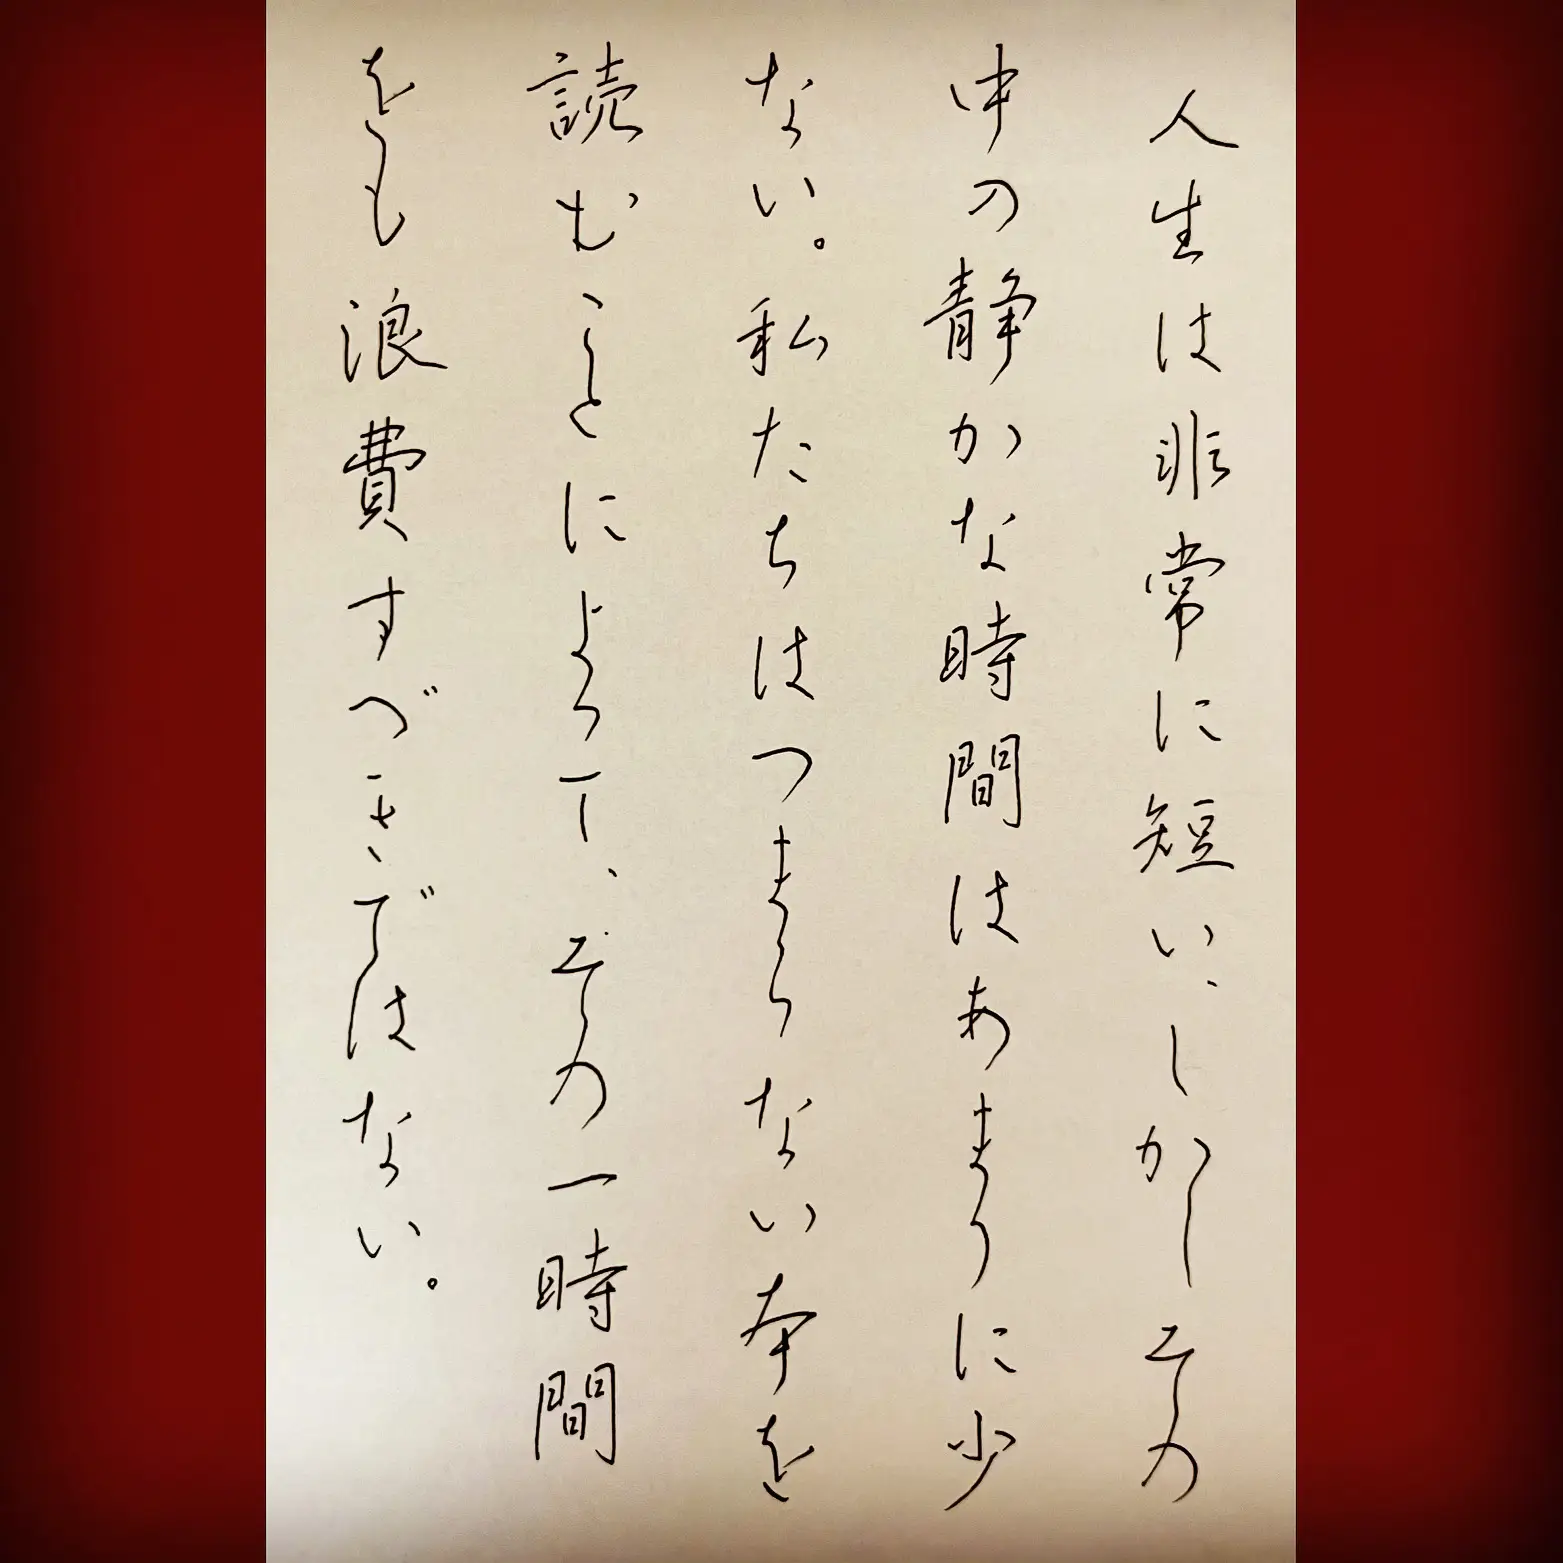 人生は非常に短い、しかしその
中の静かな時間はあまりに少
ない。私たちはつまらない本を
読むことによって、その一時間
をも浪費すべきではない。